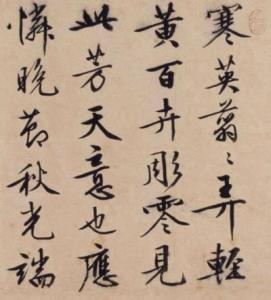 寒英翦翦弄輕
黃百卉彫零見
此芳天意也應
憐晚節秋光端